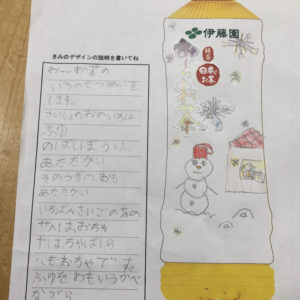 きみのデザインの説明を書いてね
おーいお茶の
いろのせつめいを
します。
さいしょのおのいろは
ふゆ
のばしぼうは、
あたたかい
そのつぎのおも
あたたかい
いちばんさいごの茶の
せんはおちゃ
てんはちゃばしら
ハもおちゃです。
ふゆをおもいうかべ
ながら
伊藤園
緑茶
日本の
お茶